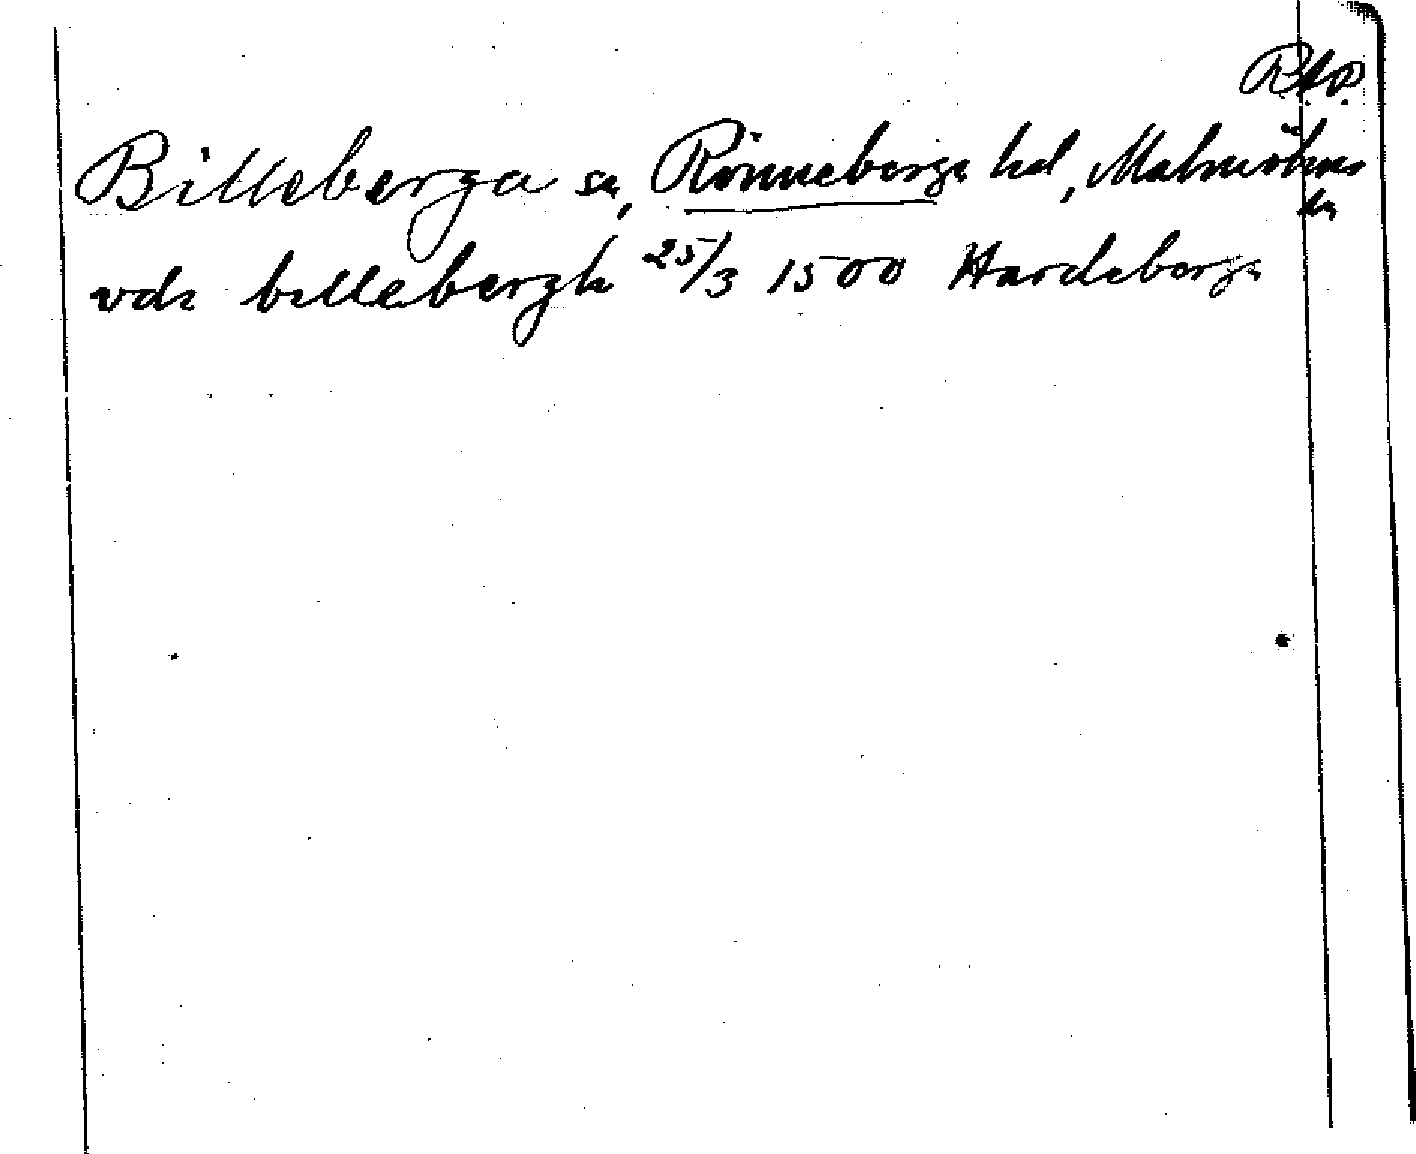 Billeberga sn, Rönneberga hd, Malmöhus
län
vdr billebergh 25/3 1500 Hardeberga